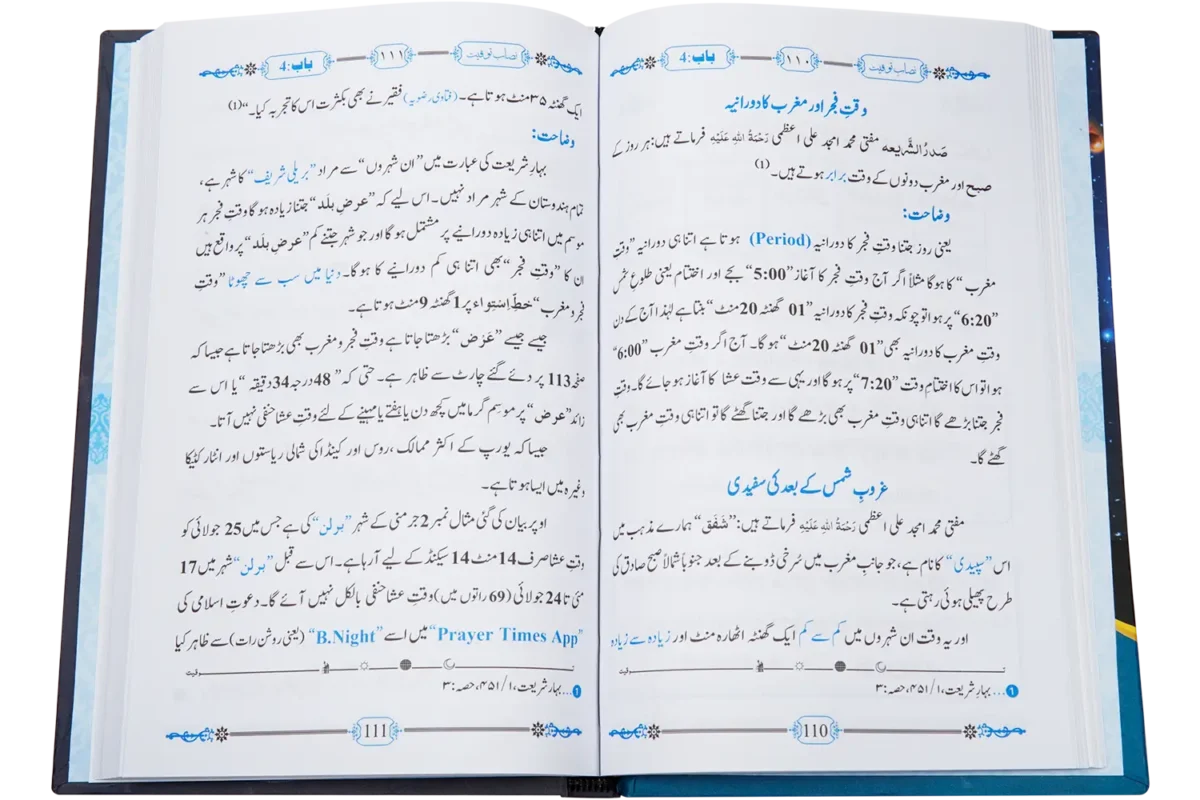 نصاب توقیت
١١٠
باب:4
وقتِ فجر اور مغرب کا دورانیہ
صَدرُالشَّریعہ مفتی محمد امجد علی اعظمی رَحْمَۃُ اللہِ عَلَیْہِ فرماتے ہیں: ہر روز کے
صبح اور مغرب دونوں کے وقت برابر ہوتے ہیں۔(1)
وضاحت:
یعنی روز جتنا وقتِ فجر کا دورانیہ (Period) ہوتا ہے اتنا ہی دورانیہ ”وقتِ
مغرب“ کا ہوگا مثلاً اگر آج وقتِ فجر کا آغاز ”5:00“ بجے اور اختتام یعنی طلوعِ شمس
”6:20“ پر ہوا تو چونکہ وقتِ فجر کا دورانیہ ”01 گھنٹہ 20 منٹ“ بنتا ہے لہٰذا آج کے دن
وقتِ مغرب کا دورانیہ بھی ”01 گھنٹہ 20 منٹ“ ہوگا۔ آج اگر وقتِ مغرب ”6:00“
ہوا تو اس کا اختتامِ وقت ”7:20“ پر ہوگا اور یہی سے وقتِ عشا کا آغاز ہو جائے گا۔ وقتِ
فجر جتنا بڑھے گا اتنا ہی وقتِ مغرب بھی بڑھے گا اور جتنا گھٹے گا تو اتنا ہی وقتِ مغرب بھی
گھٹے گا۔
غروبِ شمس کے بعد کی سفیدی
مفتی محمد امجد علی اعظمی رَحْمَۃُ اللہِ عَلَیْہِ فرماتے ہیں: ”شَفَق“ ہمارے مذہب میں
اس ”سپیدی“ کا نام ہے، جو جانبِ مغرب میں سُرخی ڈوبنے کے بعد جنوباً شمالاً صبح صادق کی
طرح پھیلی ہوئی رہتی ہے۔
اور یہ وقت ان شہروں میں کم سے کم ایک گھنٹہ اٹھارہ منٹ اور زیادہ سے زیادہ
١...بہارِ شریعت، ١/ ٤٥١، حصہ: ٣
110
نصاب توقیت
١١١
باب:4
ایک گھنٹہ ٣٥ منٹ ہوتا ہے۔ (فتاویٰ رضویہ) فقیر نے بھی بکثرت اس کا تجربہ کیا۔“(1)
وضاحت:
بہارِ شریعت کی عبارت میں ”ان شہروں“ سے مراد ”بریلی شریف“ کا شہر ہے،
تمام ہندوستان کے شہر مراد نہیں۔ اس لیے کہ ”عرضِ بلَد“ جتنا زیادہ ہوگا وقتِ فجر ہر
موسم میں اتنا ہی زیادہ دورانیے پر مشتمل ہوگا اور جو شہر جتنے کم ”عرضِ بلَد“ پر واقع ہیں
ان کا ”وقتِ فجر“ بھی اتنا ہی کم دورانیے کا ہوگا۔ دنیا میں سب سے چھوٹا ”وقتِ
فجر و مغرب“ خطِّ اِسْتِواء پر 1 گھنٹہ 9 منٹ ہوتا ہے۔
جیسے جیسے ”عَرْض“ بڑھتا جاتا ہے وقتِ فجر و مغرب بھی بڑھتا جاتا ہے جیسا کہ
صفحہ 113 پر دئے گئے چارٹ سے ظاہر ہے۔ حتی کہ ”48 درجہ 34 دقیقہ“ یا اس سے
زائد ”عرض“ پر موسمِ گرما میں کچھ دن یا ہفتے یا مہینے کے لئے وقتِ عشا حنفی نہیں آتا۔
جیسا کہ یورپ کے اکثر ممالک، روس اور کینڈا کی شمالی ریاستوں اور انٹار کٹیکا
وغیرہ میں ایسا ہوتا ہے۔
اوپر بیان کی گئی مثال نمبر 2 جرمنی کے شہر ”برلن“ کی ہے جس میں 25 جولائی کو
وقتِ عشا صرف 14 منٹ 14 سیکنڈ کے لیے آرہا ہے۔ اس سے قبل ”برلن“ شہر میں 17
مئی تا 24 جولائی (69 راتوں میں) وقتِ عشا حنفی بالکل نہیں آئے گا۔ دعوتِ اسلامی کی
”Prayer Times App“ میں اسے ”B.Night“ (یعنی روشن رات) سے ظاہر کیا
١...بہارِ شریعت، ١/ ٤٥١، حصہ: ٣
111